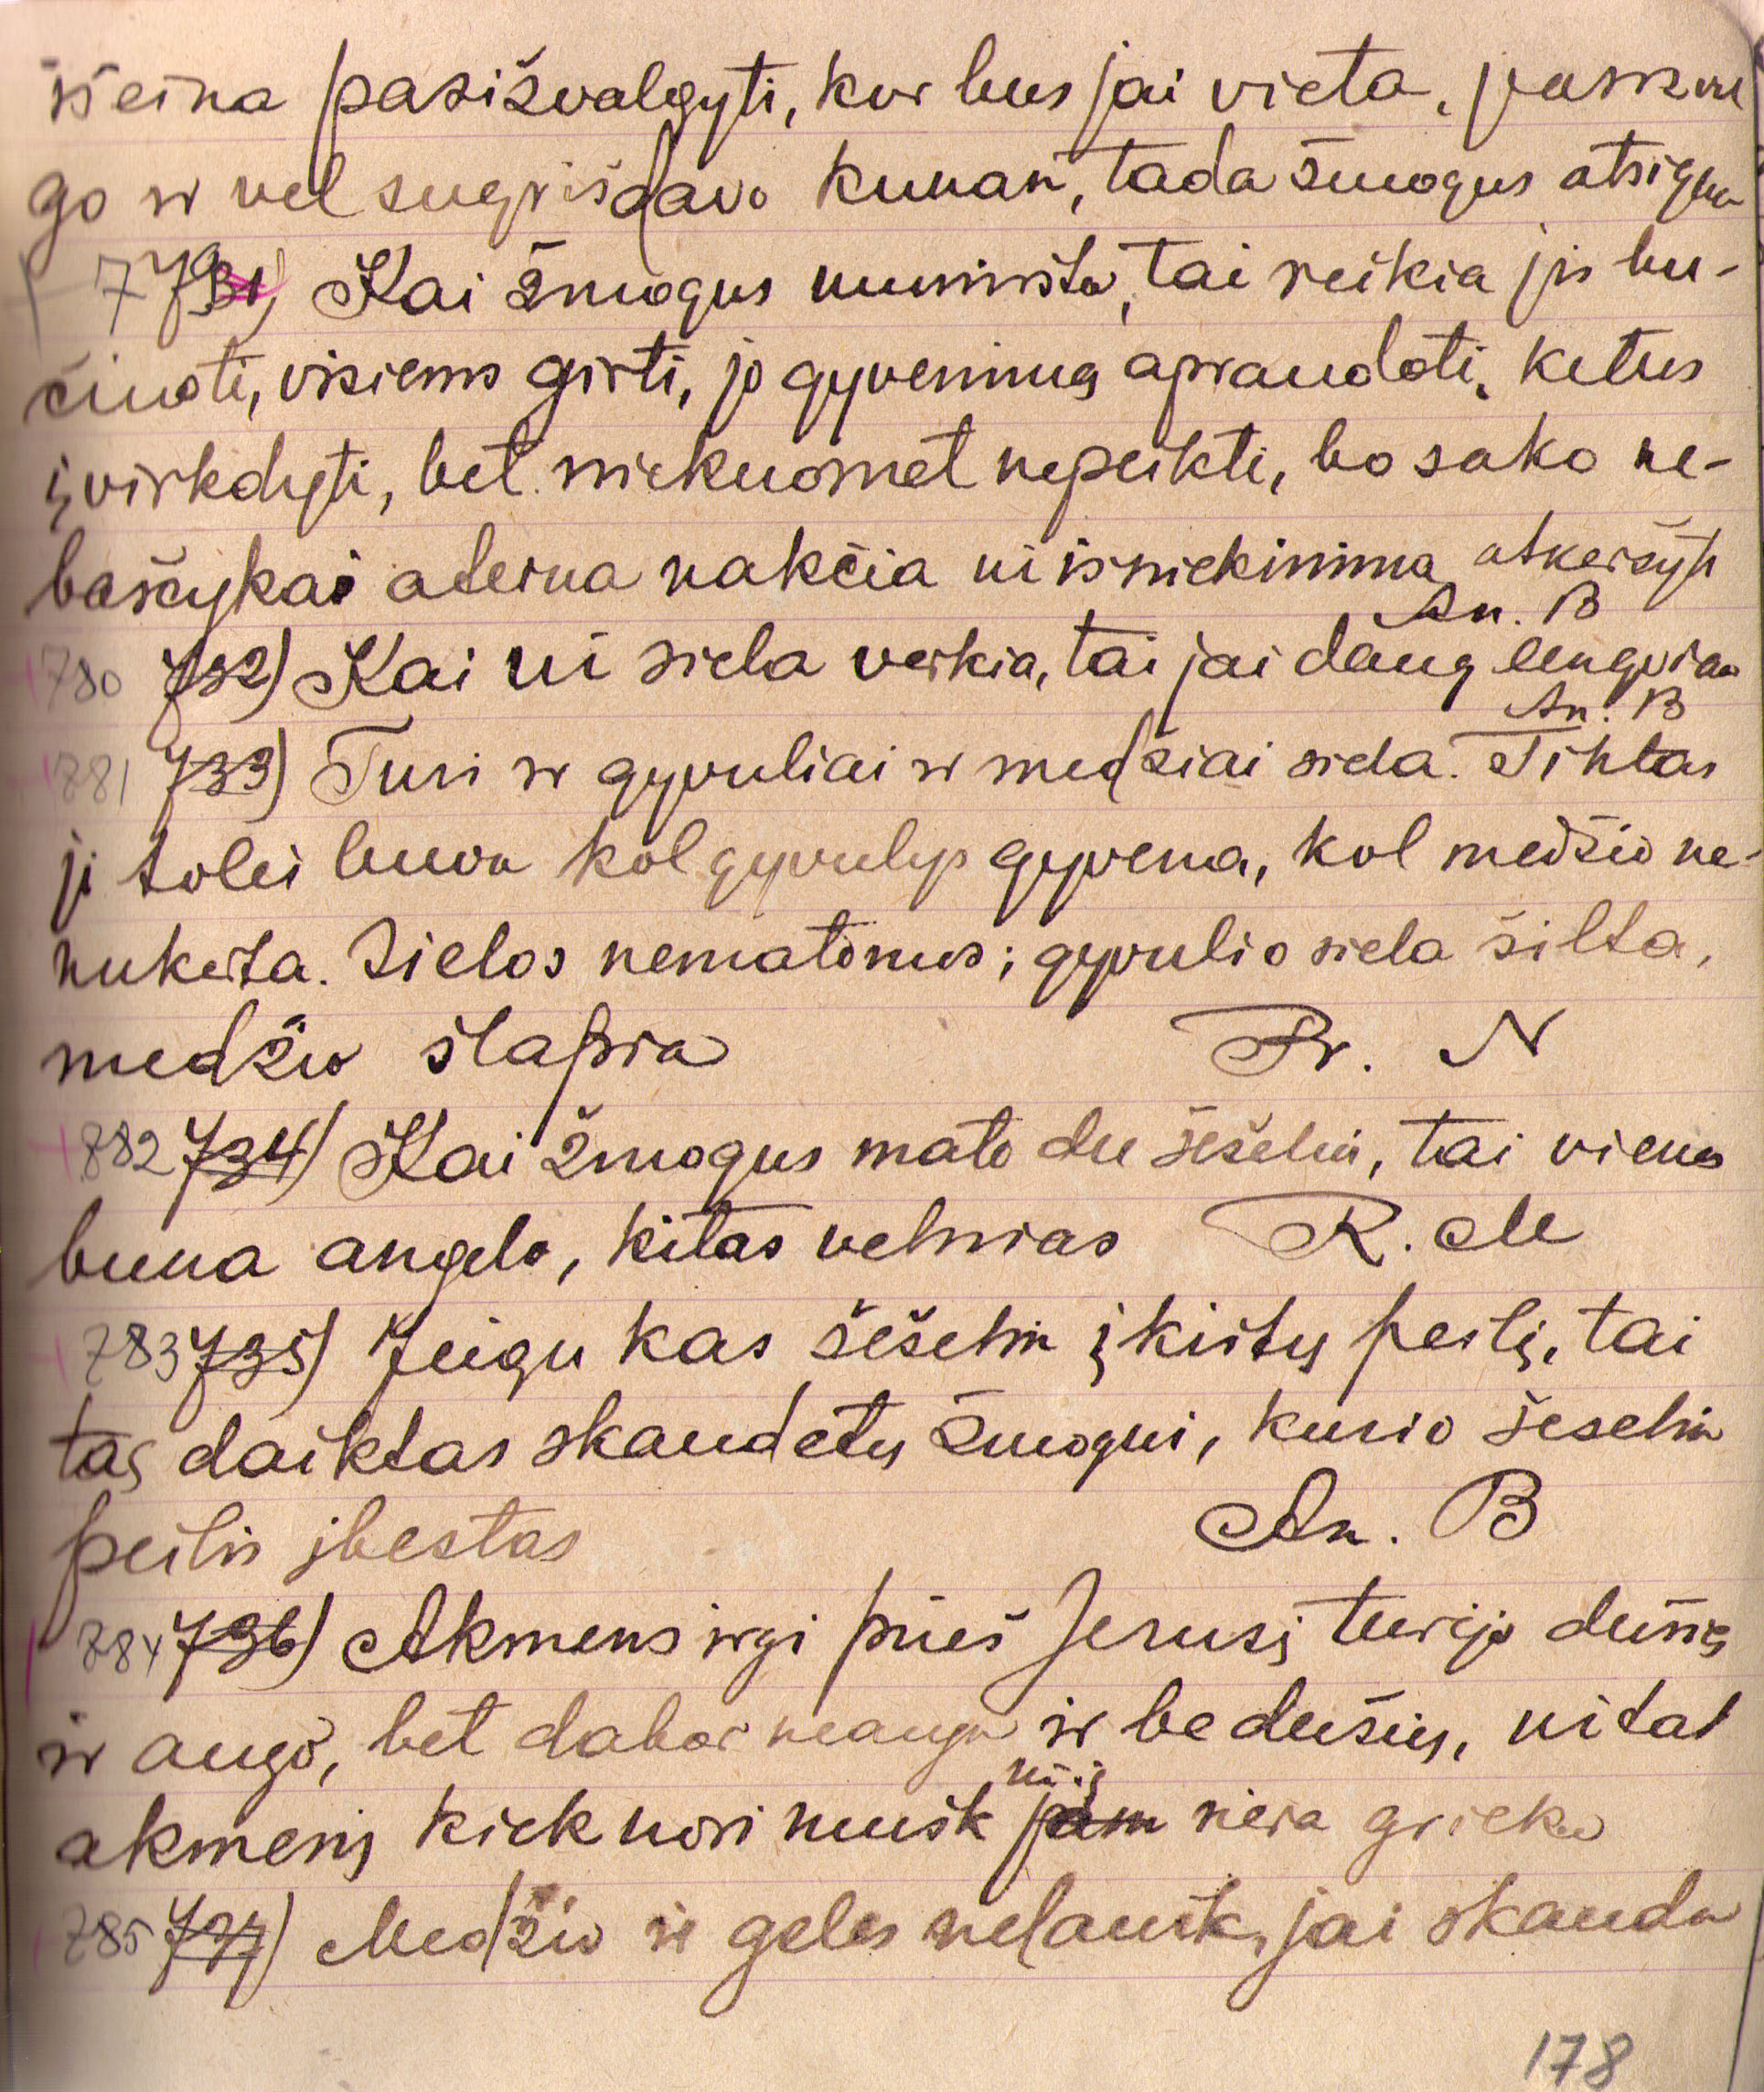 išeina pasižvalgyti, kur bus jai vieta,
go ir vel sugrišdavo kunan, tada žmogus atsigau
779 731) Kai žmogus numiršta, tai reikia jis bu-
činoti, visiems girti, jo gyvenimą apraudoti, kitus
įvirkdyti, bet niekuomet nepeikti, bo sako ne-
baščykai ateina nakčia už išniekinimą atkeršyti
An. B
780 732) Kai už siela verkia, tai jai daug lengviau
An. B
781 733) Turi ir gyvuliai ir medžiai siela. Tiktai
ji tolei buva kol gyvulys gyvena, kol medžio ne-
nukerta. Sielos nematomos; gyvulio siela šilta,
medžio šlapia Pr. N
882 734) Kai žmogus mato du šešeliu, tai vienas
buna angelo, kitas velnias R. M
783 735) Jeigu kas šešelin įkištų peilį, tai
tas daiktas skaudetų žmogui, kurio šešelin
peilis įbestas An. B
784 736) Akmens irgi prieš Jezusį turėjo dušią
ir augo, bet dabar neauga ir be dušių, už tat
akmenį kiek nori mušk jam už jį niera grieko
785 737) Medžio ir geles nelaušk, jai skauda
178